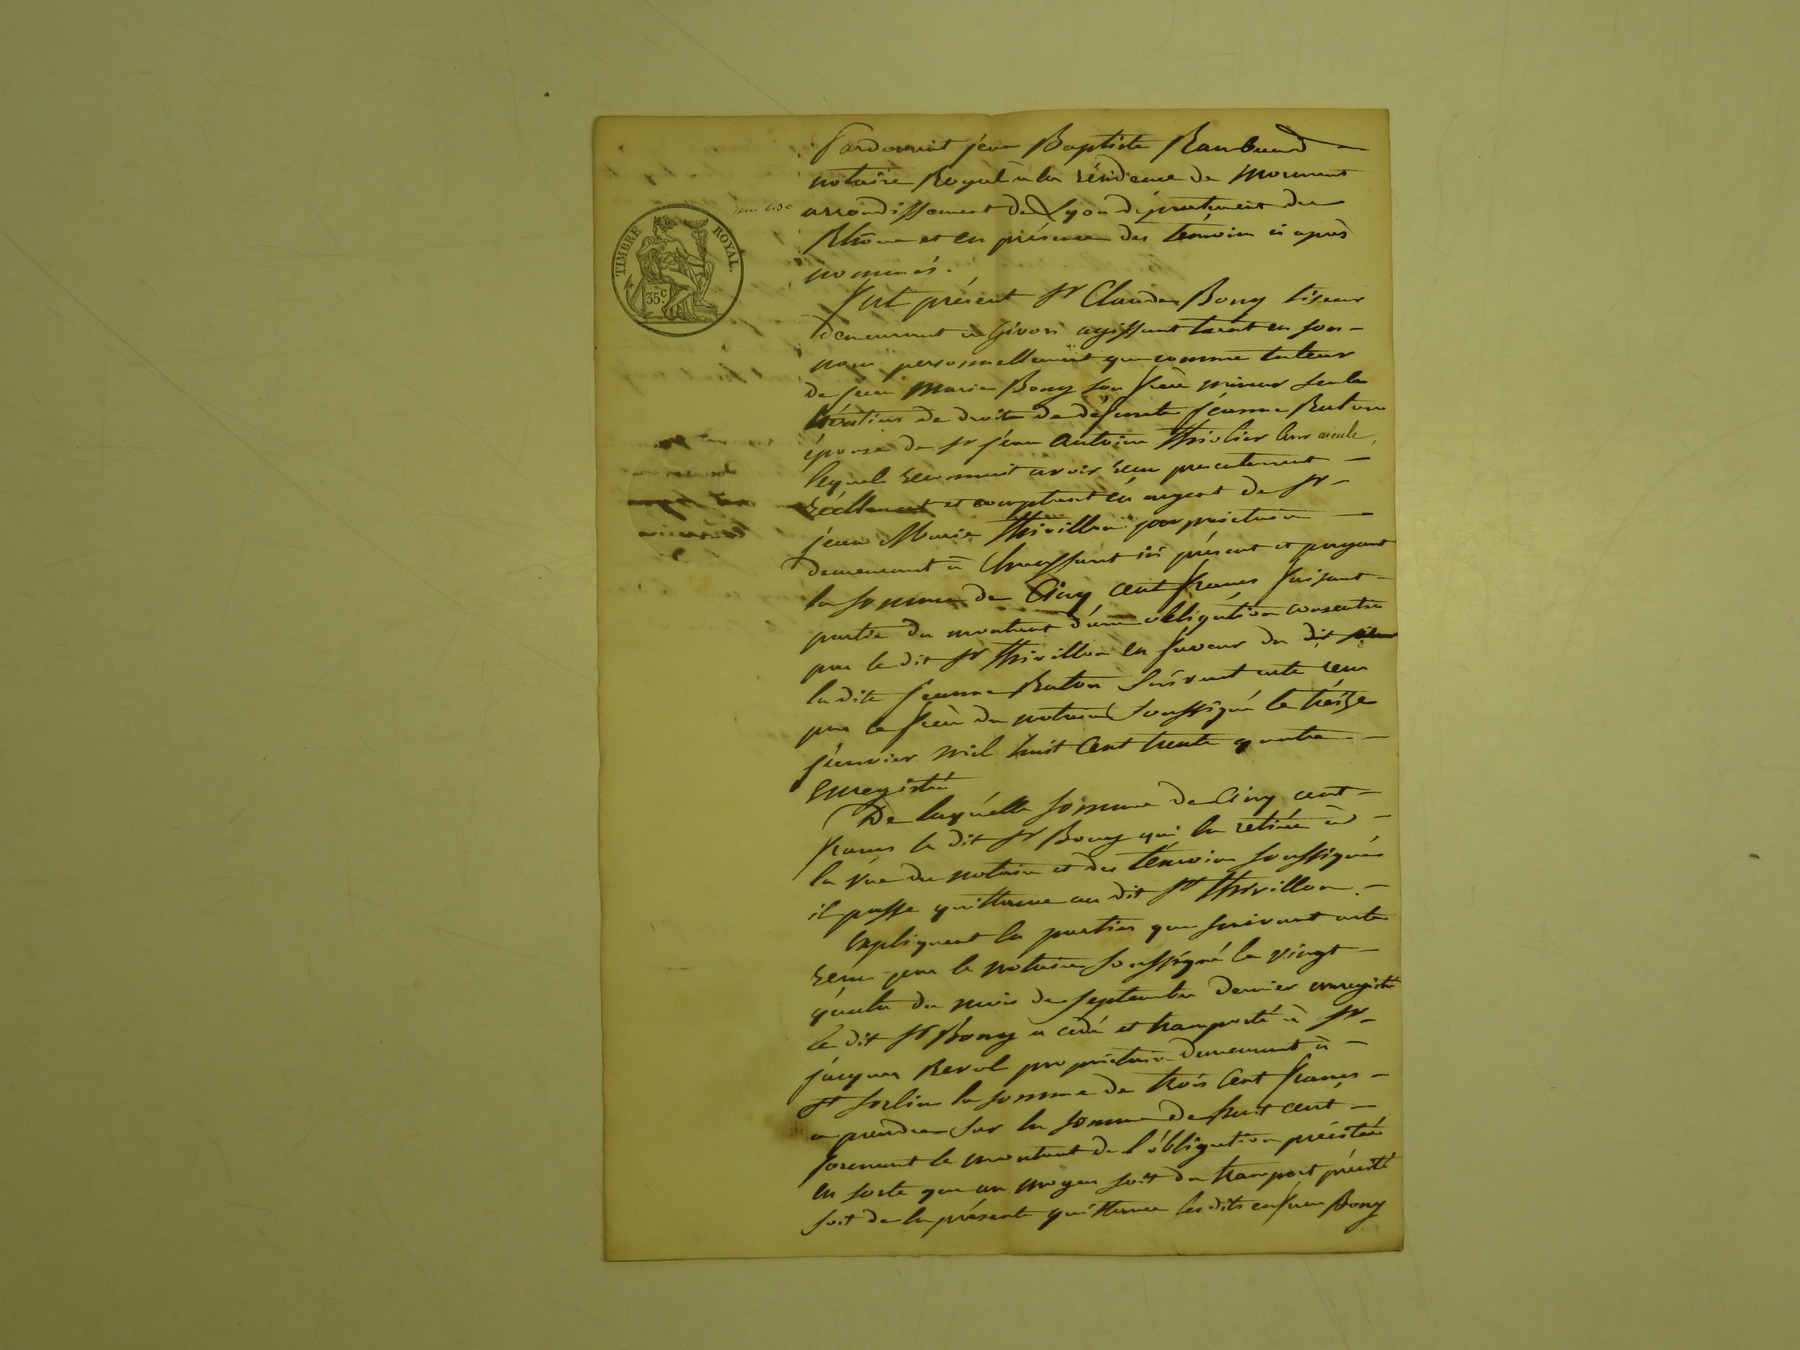 TIMBRE ROYAL.
35c.
Pardevant jean Baptiste Rambaud
notaire Royal à la résidence de Mornant
arrondissement de Lyon département du
Rhône et en présence des témoins ci après
nommés.
fut présent Sr Claude Bony tiseur
demeurant à Givors agissant tant en son
nom personnellement que comme tuteur
de jean Marie Bony son frère mineur seuls
héritiers de droits de défunte jéanne Raton
épouse de Sr jéan Antoine Thivlier leur aieule,
lequel reconnait avoir reçu présentement
réellement et comptant en argent de Sr
jean Marie Thivillon propriétaire
demeurant à Chaussant ici présent et payant
la somme de Cinq cent francs faisant
partie du montant d'une obligation consentie
par le dit Sr Thivillon en faveur du dit
la dite jeanne Raton suivant acte reçu
par le frère du notaire soussigné le treize
jeanvier mil huit cent trente quatre
enregistré
De laquélle somme de Cinq cent
francs le dit Sr Bony qui la retirée à
la vue du notaire et des témoins soussignés
il passe quittance au dit Sr Thivillon.
Expliquent les parties que suivant acte
reçu par le notaire soussigné le vingt
quatre du mois de septembre dernier enregistré
le dit Sr Bony a cédé et transporté à Sr
jacques Revol propriétaire demeurant à
St Sorlin la somme de trois cent francs
a prendre sur la somme de huit cent
formant le montant de l'obligation précitée
en sorte que au moyen soit du transport précité
soit de la présente quittance les dits enfans Bony